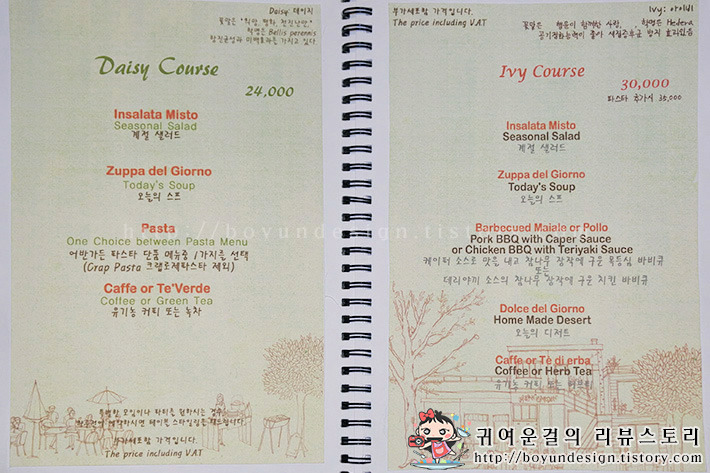 Daisy: 데이지
꽃말은 "희망, 평화, 천진난만"
학명은 Bellis perennis
항진균성과 미백효과를 가지고 있다
Daisy Course
24,000
Insalata Misto
Seasonal Salad
계절 샐러드
Zuppa del Giorno
Today's Soup
오늘의 스프
Pasta
One Choice between Pasta Menu
어반가든 파스타 단품 메뉴중 1가지를 선택
(Crap Pasta 크랩로제파스타 제외)
Caffe or Te'Verde
Coffee or Green Tea
유기농 커피 또는 녹차
특별한 모임이나 파티를 원하시는 경우,
예약하시면 테이블 스타일링을 해드립니다.
부가세포함 가격입니다.
The price including V.A.T
부가세포함 가격입니다.
The price including V.A.T
Ivy: 아이비
꽃말은 행운이 함께한 사랑, 학명은 Hedera
공기정화능력이 좋아 새집증후군 방지 효과있음
Ivy Course
30,000
파스타 추가시 35,000
Insalata Misto
Seasonal Salad
계절 샐러드
Zuppa del Giorno
Today's Soup
오늘의 스프
Barbecued Maiale or Pollo
Pork BBQ with Caper Sauce
or Chicken BBQ with Teriyaki Sauce
케이퍼 소스로 맛을 내고 참나무 장작에 구운 목등심 바비큐
또는
데리야끼 소스의 참나무 장작에 구운 치킨 바비큐
Dolce del Giorno
Home Made Desert
오늘의 디저트
Caffe or Tè di erba
Coffee or Herb Tea
유기농 커피 또는 허브티
http://boyundesign.tistory.com
귀여운걸의 리뷰스토리
http://boyundesign.tistory.com